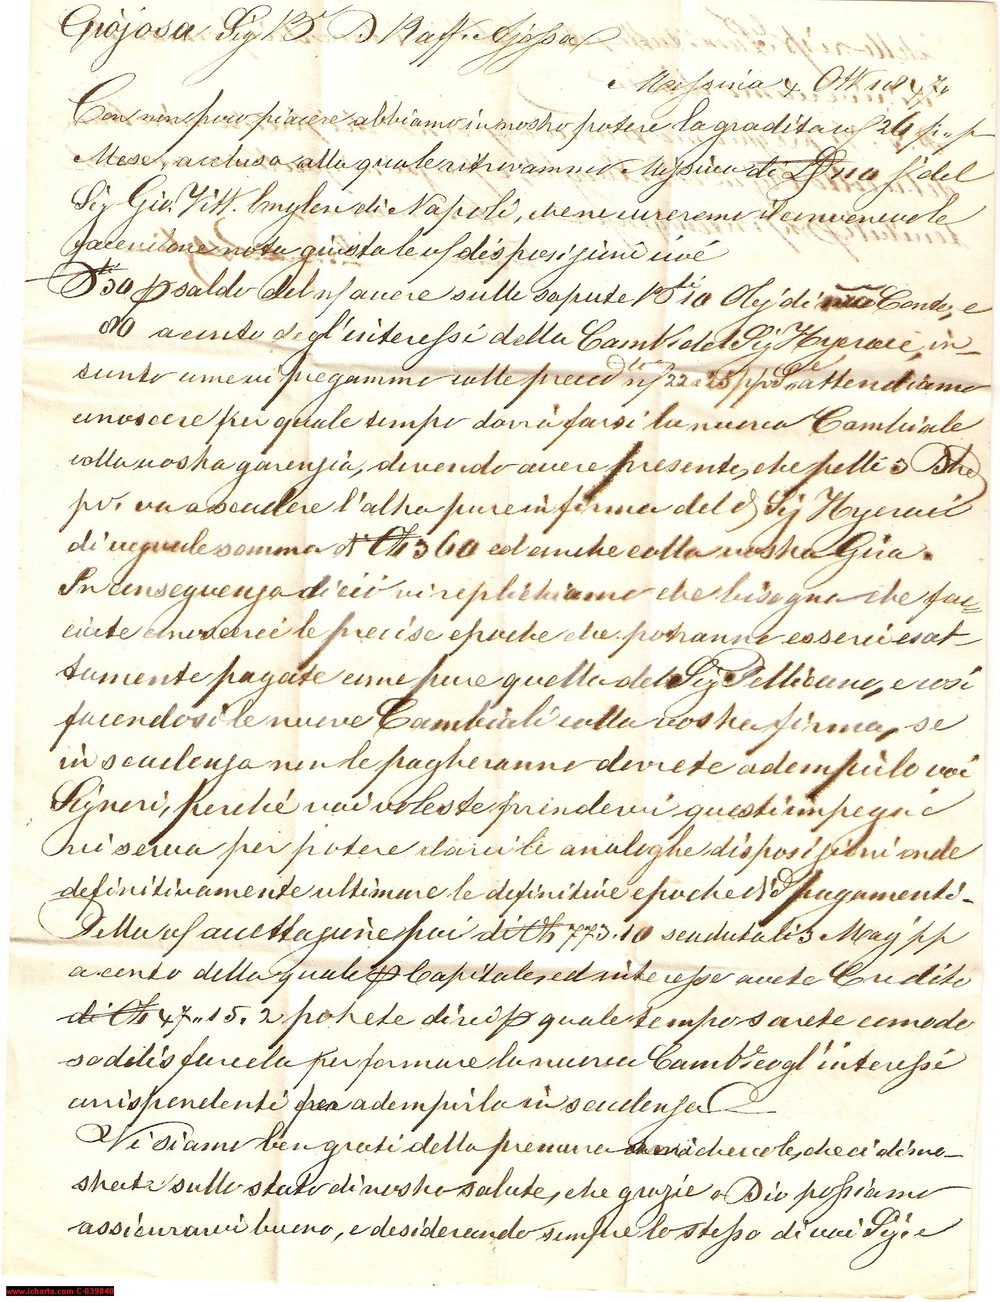 Giojosa Sig B D Raff. Ajossa
Messina 4 Ott 1847
Con non poco piacere abbiamo in nostro potere la gradita v/ 26 p p
Mese, acclusa alla quale ritrovammo Missiva di D 110 del
Sig Gio. Vitt. Englen di Napoli, che ne cureremo il convenevole
facendone nota giusta le v/ disposizioni cioè
D 30 p saldo del n/ avere sulle sapute B 10 Olj di Conto, e
80 a conto degl'interessi della Camb del Sig Hyeraci, in
tanto come vi pregammo colle preced n/ 22 e 25 pp attendiamo
conoscere per quale tempo dovrà farsi la nuova Cambiale
colla vostra garenzia, dovendo avere presente, che pelli 3
p. va a scadere l'altra pure in firma del d Sig Hyeraci
di uguale somma d 360 ed anche colla vostra Gira.
In conseguenza di ciò vi replichiamo che bisogna che fac-
ciate conoscerci le precise epoche che potranno esserci esat-
tamente pagate come pure quella del Sig Pellicano, e così
facendosi le nuove Cambiali colla vostra firma, se
in scadenza non le pagheranno dovrete adempirlo voi
Signori, perché voi voleste prendervi questi impegni
vi serva per potere darci le analoghe disposizioni onde
definitivamente ultimare le definitive epoche di pagamenti.
Della v/ accettazione poi di 773.10 scaduta li 3 Mag pp
a conto della quale p Capitale, ed interesse avete Credito
di 47.. 15. 2 potrete dirci p quale tempo sarete comodo
sodilisfarcela per formare la nuova Camb cogl'interessi
corrispondenti per adempirla in scadenza
Vi siamo ben grati della premura amichevole, che ci dimo-
strate sullo stato di nostra salute, che grazie a Dio possiamo
assicurarvi buono, e desiderando sempre lo stesso di voi Sig e
www.icharta.com C-839840